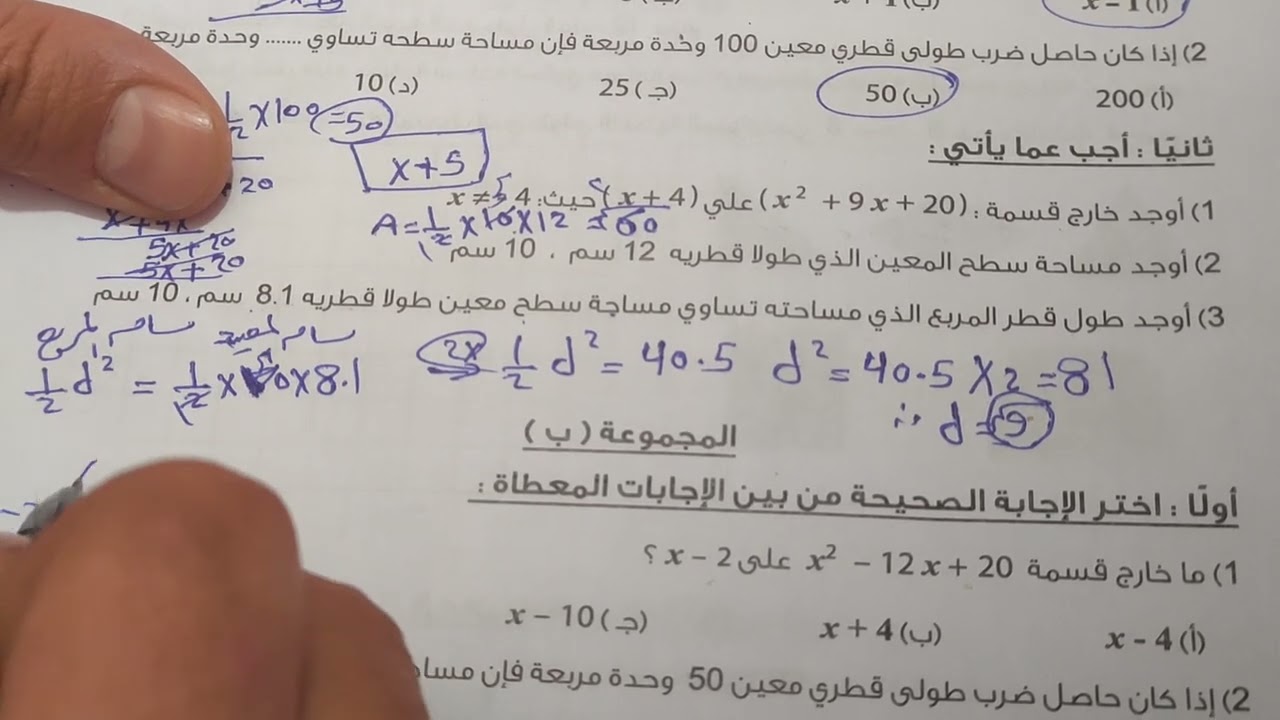 (أ) x − 1
2) إذا كان حاصل ضرب طولى قطري معين 100 وحدة مربعة فإن مساحة سطحه تساوي ....... وحدة مربعة
(أ) 200 (ب) 50 (جـ) 25 (د) 10
1/2 × 100 = 50
x + 5
ثانيًا : أجب عما يأتي :
1) أوجد خارج قسمة : (x² + 9x + 20) علي (x + 4) حيث : x ≠ 4
A = 1/2 × 10 × 12 = 60
5x + 20
5x + 20
2) أوجد مساحة سطح المعين الذي طولا قطريه 12 سم ، 10 سم
3) أوجد طول قطر المربع الذي مساحته تساوي مساحة سطح معين طولا قطريه 8.1 سم ، 10 سم
1/2 d² = 1/2 × 10 × 8.1
2× 1/2 d² = 40.5 d² = 40.5 × 2 = 81
∴ d = 9
المجموعة ( ب )
أولًا : اختر الإجابة الصحيحة من بين الإجابات المعطاة :
1) ما خارج قسمة x² − 12x + 20 على x − 2 ؟
(أ) x − 4 (ب) x + 4 (جـ) x − 10
2) إذا كان حاصل ضرب طولى قطري معين 50 وحدة مربعة فإن